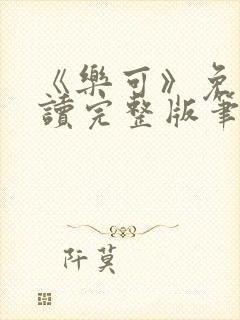 《樂可》免
讀完整版筆
阡莫